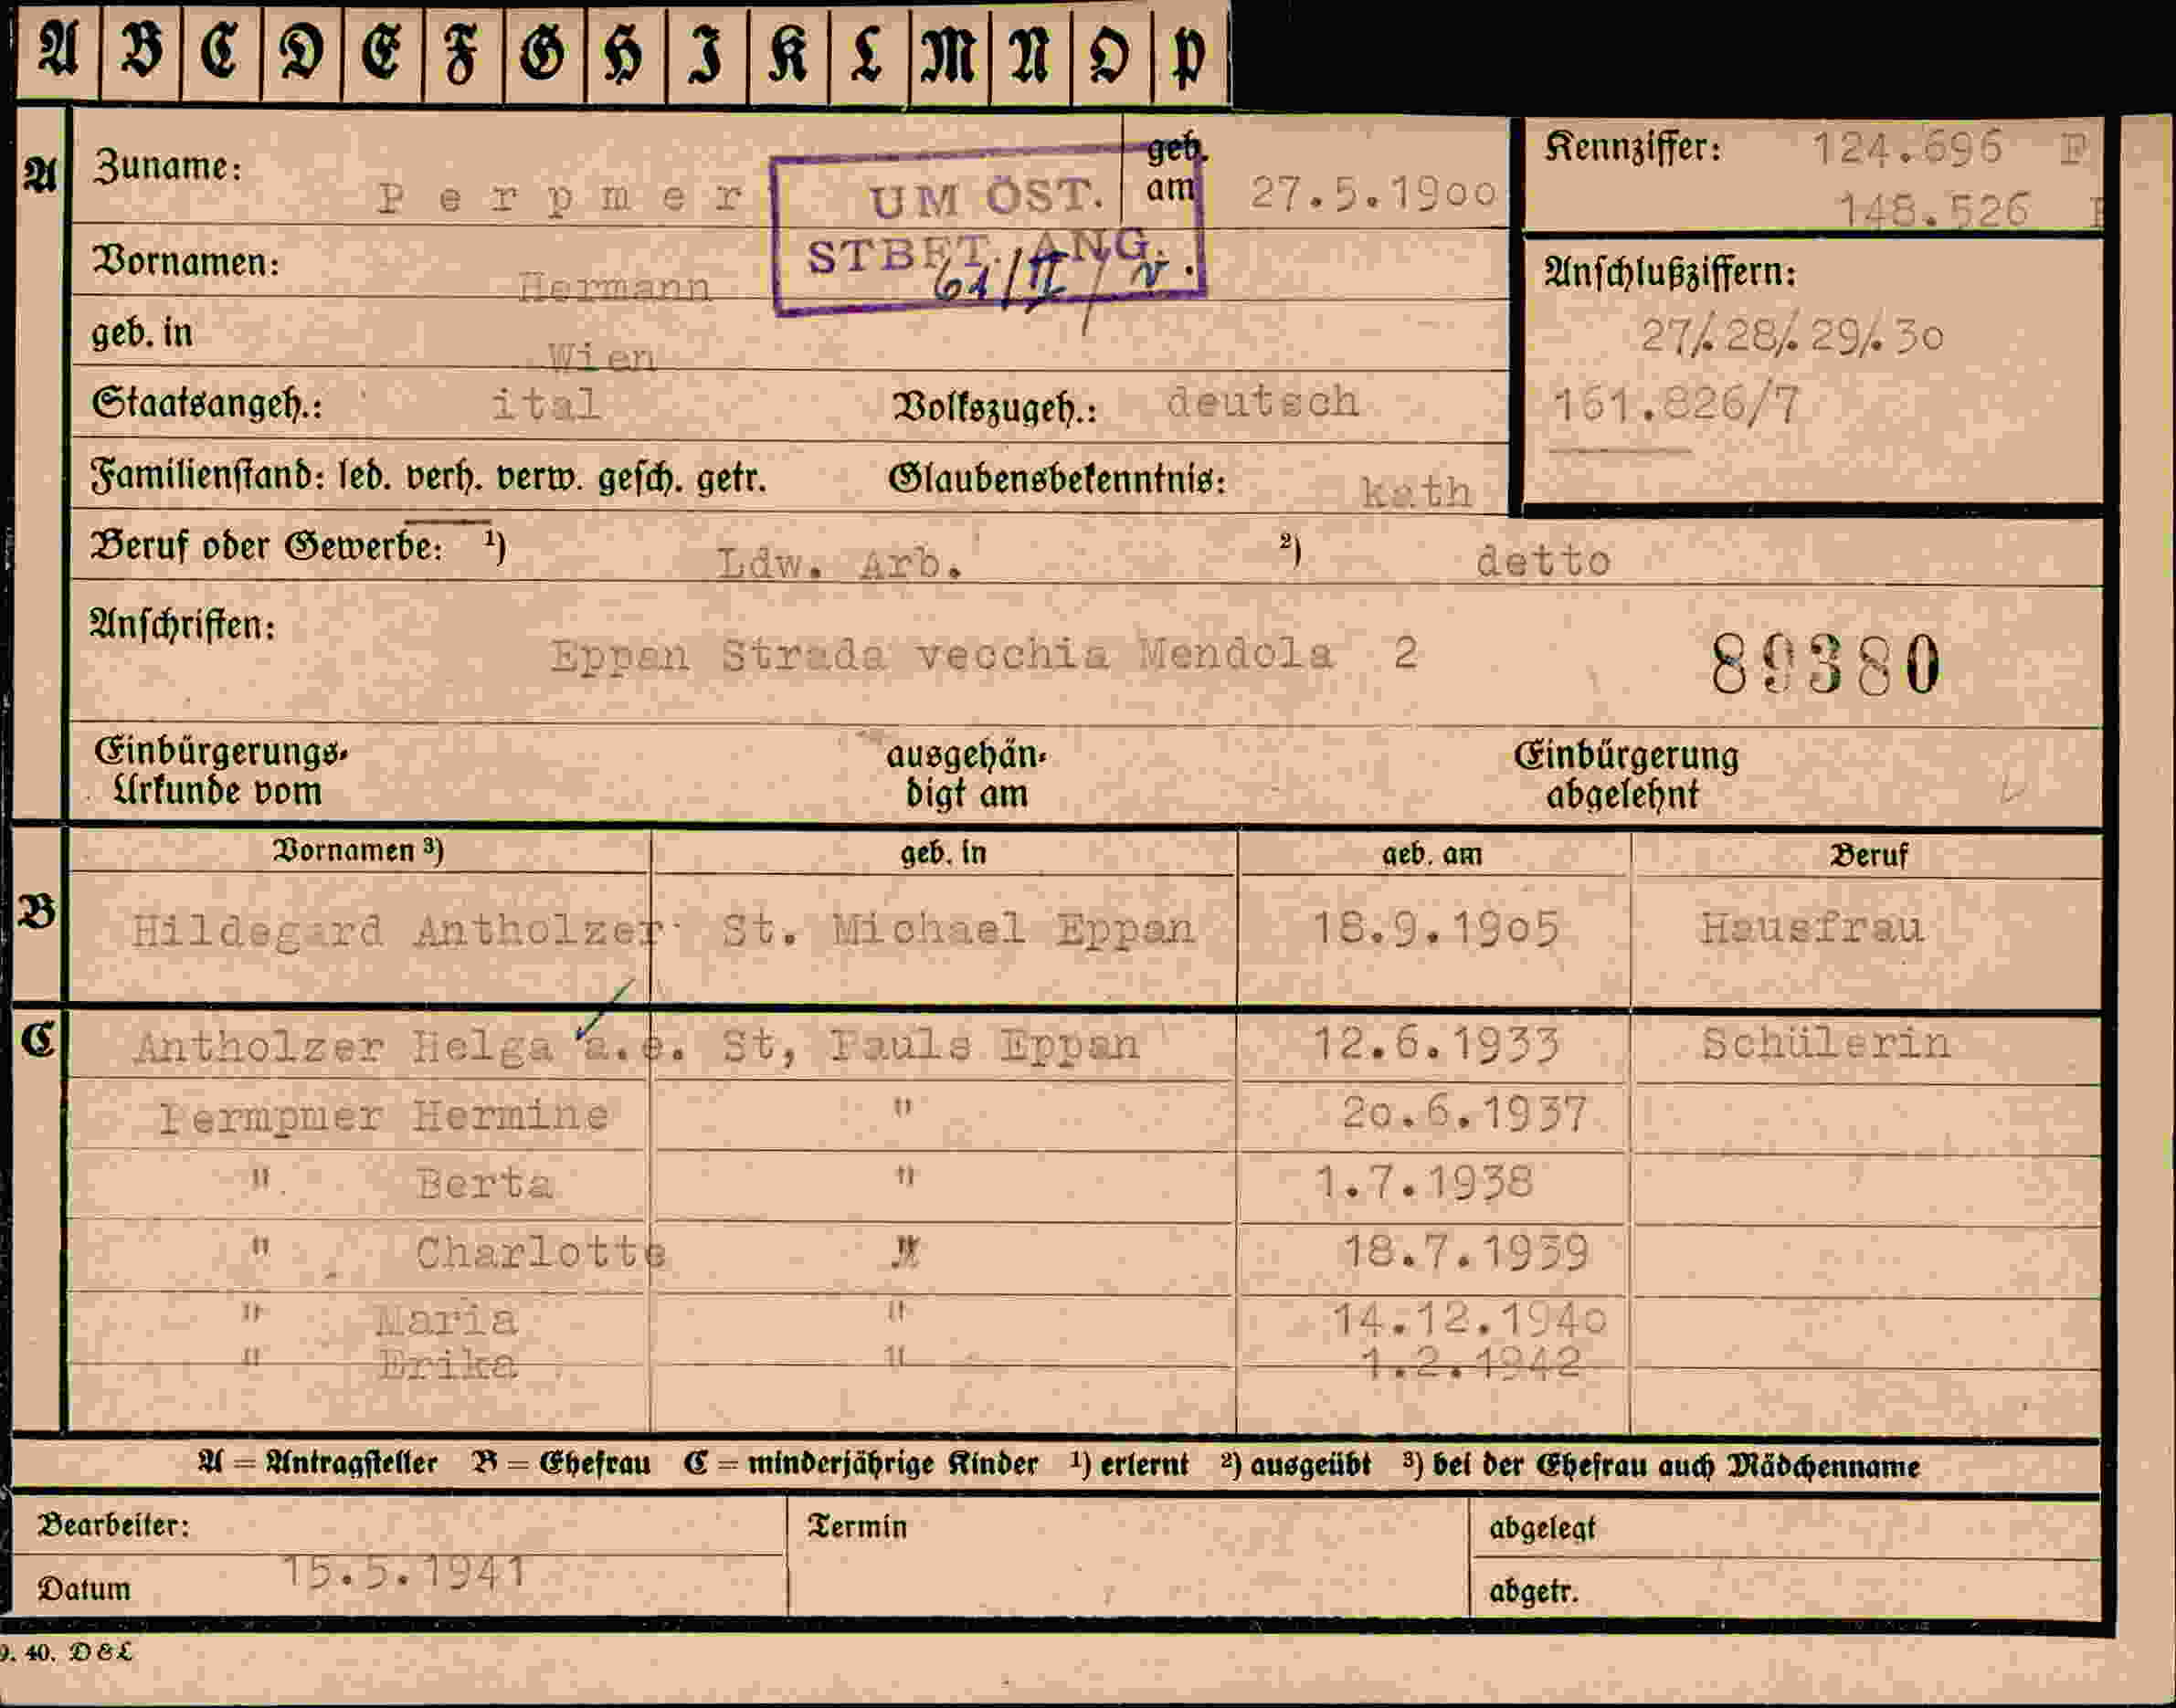 A B C D E F G H I K L M N O P
A Zuname: Perpmer geb. am 27.5.19oo
UM ÖST.
STBET. ANG.
61/II/V.
Kennziffer: 124.696
148.526
Vornamen: Hermann
Anschlußziffern:
27/.28/.29/.3o
161.826/7
geb. in Wien
Staatsangeh.: ital Volkszugeh.: deutsch
Familienstand: led. verh. verw. gesch. getr. Glaubensbekenntnis: kath
Beruf oder Gewerbe: 1) Ldw. Arb. 2) detto
Anschriften: Eppan Strada vecchia Mendola 2 89380
Einbürgerungs- ausgehän- Einbürgerung
Urkunde vom digt am abgelehnt
Vornamen 3) geb. in geb. am Beruf
B Hildegard Antholzer St. Michael Eppan 18.9.19o5 Hausfrau
C Antholzer Helga a.e. St, Pauls Eppan 12.6.1933 Schülerin
Permpmer Hermine " 2o.6.1937
" Berta " 1.7.1938
" Charlotte " 18.7.1939
" Maria " 14.12.194o
" Erika " 1.2.1942
A = Antragsteller B = Ehefrau C = minderjährige Kinder 1) erlernt 2) ausgeübt 3) bei der Ehefrau auch Mädchenname
Bearbeiter: Termin abgelegt
Datum 15.5.1941 abgetr.
9. 40. D & L